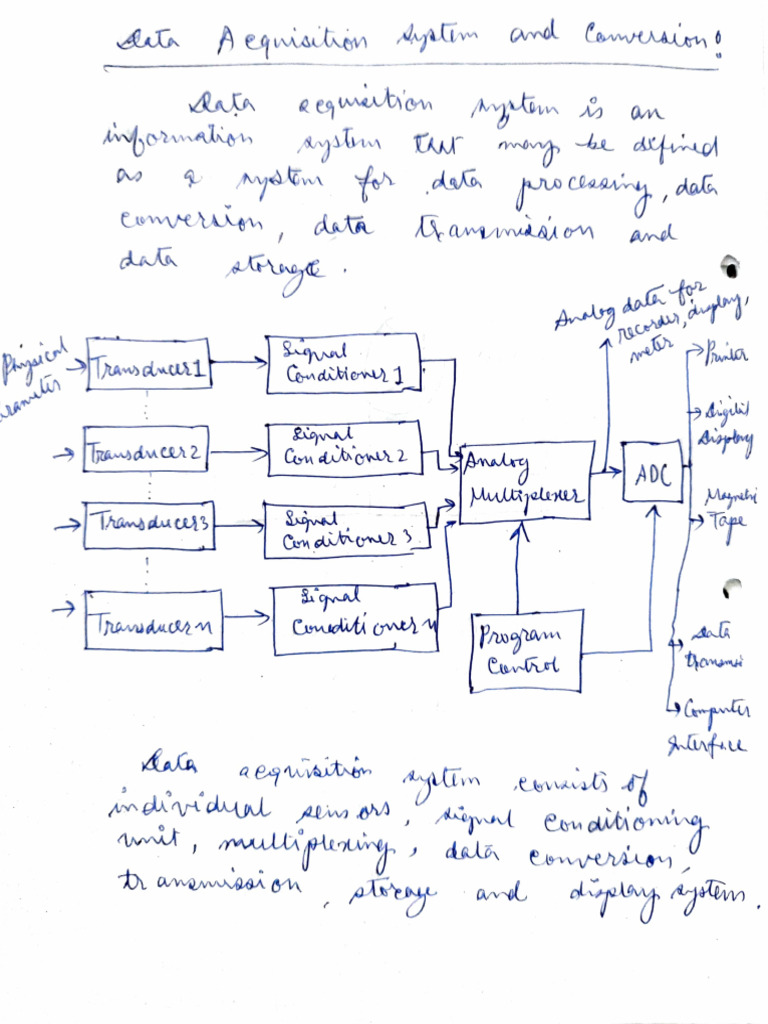 Data Acquisition System and Conversion:
Data acquisition system is an
information system that may be defined
as a system for data processing, data
conversion, data transmission and
data storage.
Analog data for
recorder, display,
meter
Physical
Parameter
Transducer 1
Signal
Conditioner 1
Printer
Digital
Display
Transducer 2
Signal
Conditioner 2
Analog
Multiplexer
ADC
Magnetic
Tape
Transducer 3
Signal
Conditioner 3
Transducer n
Signal
Conditioner n
Program
Control
Data
transmi
Computer
Interface
Data acquisition system consists of
individual sensors, signal conditioning
unit, multiplexing, data conversion,
transmission, storage and display system.